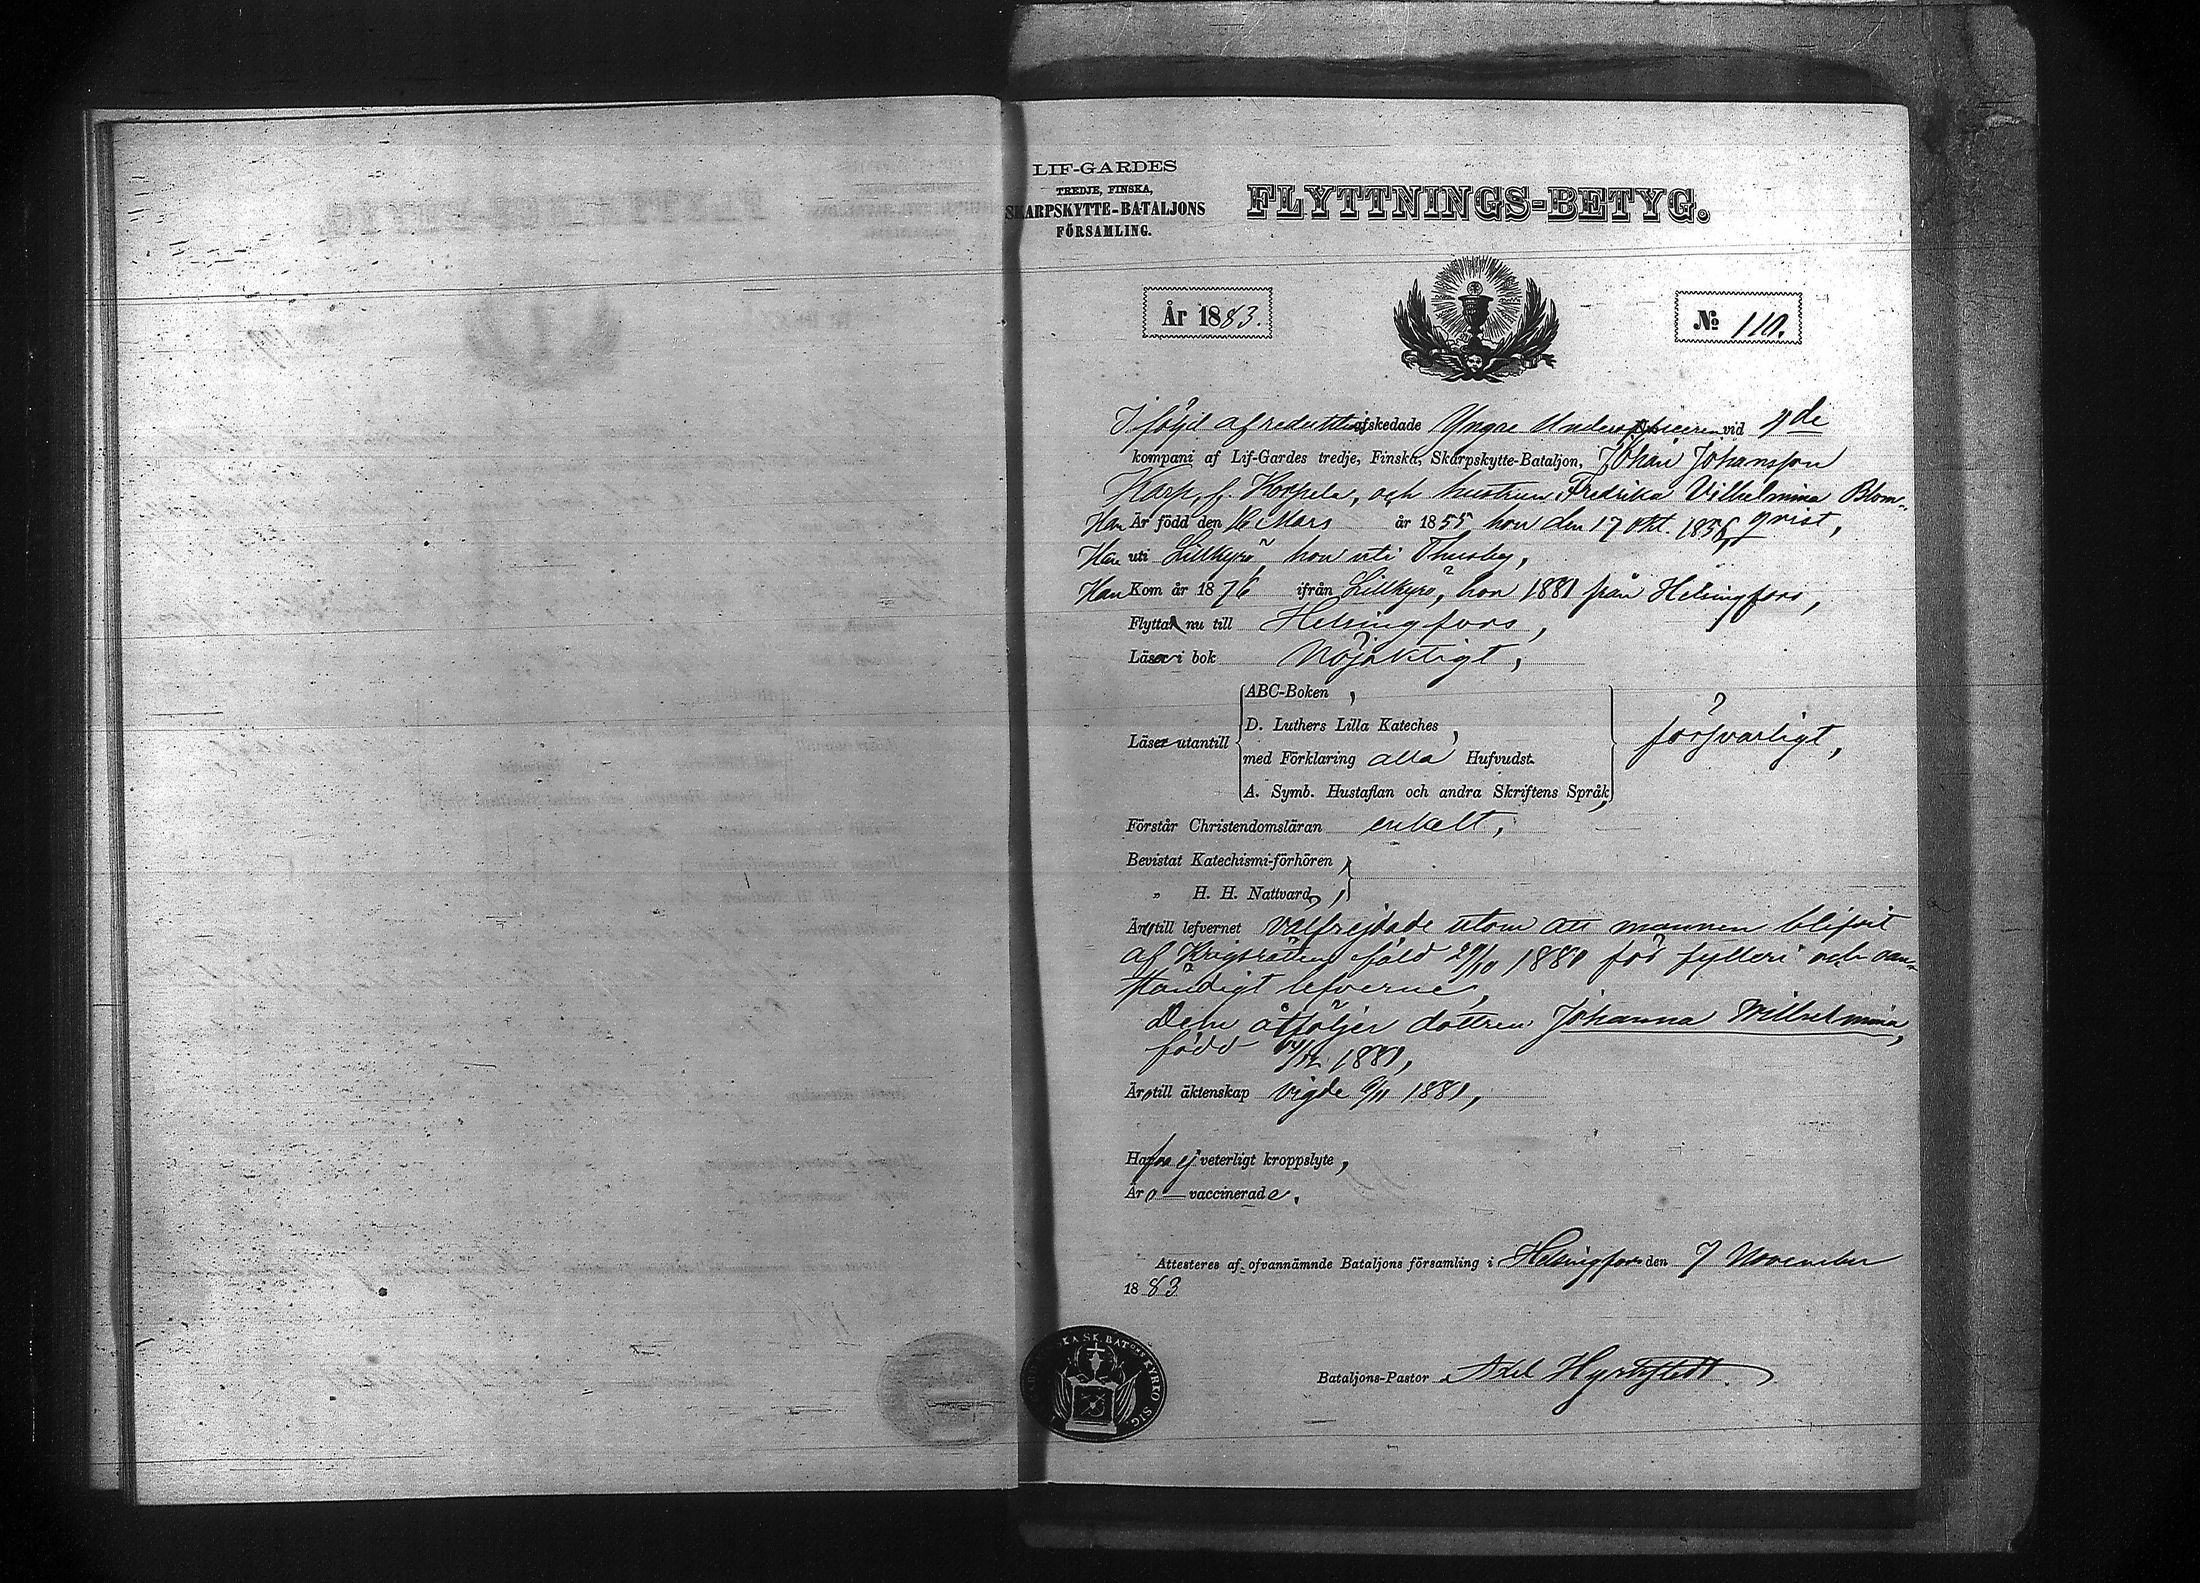 LIF-GARDES
TREDJE, FINSKA,
SKARPSKYTTE-BATALJONS
FÖRSAMLING.
FLYTTNINGS-BETYG.
År 1883.
№ 110.
I följd af reduktion afskedade Yngre Underofficeren vid 4de
kompani af Lif-Gardes tredje, Finska, Skarpskytte-Bataljon, Johan Johansson
Karp, f. Korpela, och hustrun Fredrika Vilhelmina Blom-
Han Är född den 16 Mars år 1855, hon den 17 Okt. 1856, qvist,
Han uti Lillkyrö, hon uti Thusby,
Han Kom år 1876 ifrån Lillkyrö, hon 1881 från Helsingfors,
Flytta nu till Helsingfors,
Läser i bok Nöjaktigt,
ABC-Boken,
D. Luthers Lilla Kateches,
Läser utantill
med Förklaring alla Hufvudst.
A. Symb. Hustaflan och andra Skriftens Språk,
försvarligt,
Förstår Christendomsläran enkelt,
Bevistat Katechismi-förhören,
„ H. H. Nattvard,
Äro till lefvernet välfrejdade utom att mannen blifvit
af Krigsrätten fäld 29/10 1880 för fylleri och oan-
ständigt lefverne,
Dem åtföljer dottren Johanna Wilhelmina,
född /12 1881,
Äro till äktenskap vigde 9/11 1881,
Hafva ej veterligt kroppslyte,
Äro — vaccinerade.
Attesteres af ofvannämnde Bataljons församling i Helsingfors den 7 November
1883
SKA SK. BAT:ONS KYRKO SIG.
Bataljons-Pastor Axel Hyrkstedt